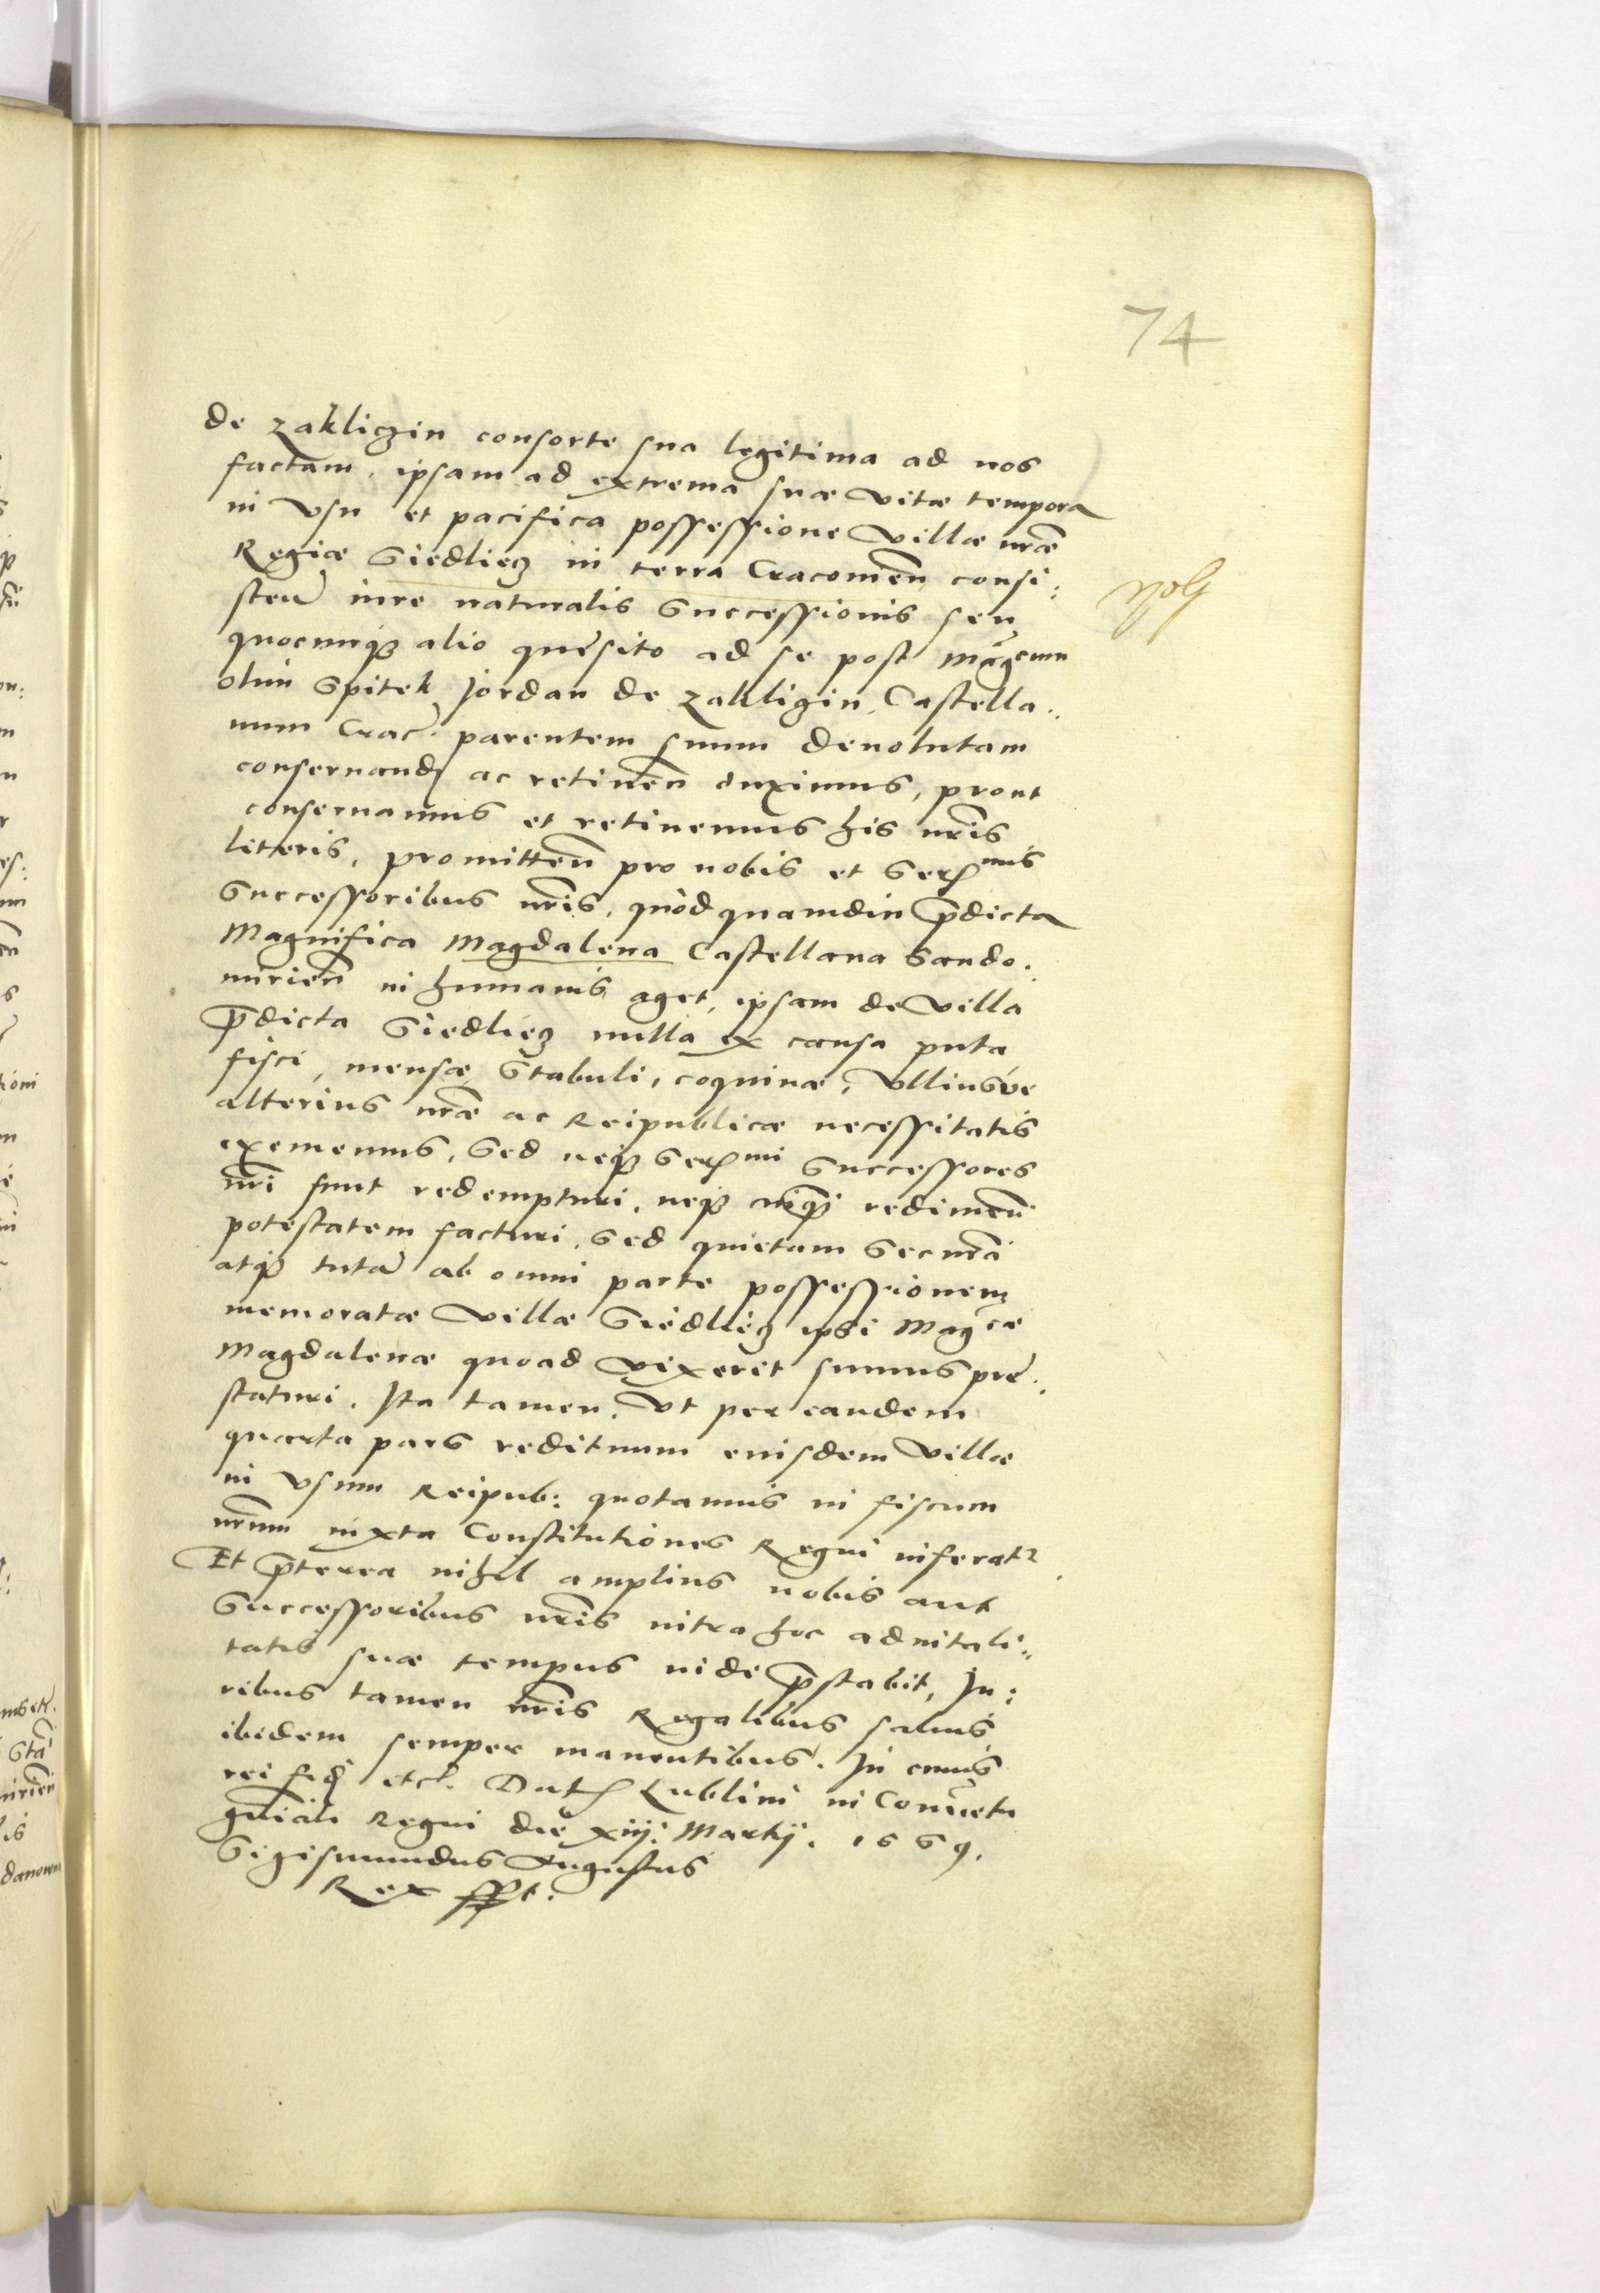 74
de Zakliczin consorte sua legitima ad nos
factam, ipsam ad extrema suæ vitæ tempora
in vsu et pacifica possessione villæ nr̃æ
Regiæ Siedliecz in terra Cracouieñ consi:
steñ iure naturalis Successionis seu
quocunq3 alio quęsito ad se post Mag̃cum
olim Spitek Jordan de Zakliczin Castella:
num Crac̃. parentem suum deuolutam
conseruand̃ ac retineñ duximus, prout
conseruamus et retinemus his nr̃is
literis, promitteñ pro nobis et Ser̃mis
Successoribus nr̃is, quòd quamdiu p̃dicta
Magnifica Magdalena Castellana Sando:
mirieñ in humanis aget, ipsam de villa
p̃dicta Siedliecz nulla ex causa puta
fisci, mensæ, Stabuli, coquinæ, vlliusúe
alterius nr̃æ ac Reipublicæ necessitatis
exememus, Sed neq3 Ser̃mi Successores
nr̃i sunt redempturi, neq3 cuiq̃ redimeñ
potestatem facturi, Sed quietam Securã
atq3 tutã ab omni parte possessionem
memoratæ villæ Siedliecz ipsi Mag̃cæ
Magdalenæ quoad vixerit sumus prę:
staturi. Ita tamen, vt per eandem
quarta pars redituum eiusdem villæ
in vsum Reipub: quotannis in fiscum
nr̃um iuxta Constitutiones Regni inferatr
Et p̃terea nihil amplius nobis aut
Successoribus nr̃is intra hoc aduitali:
tatis suæ tempus inde p̃stabit, Iu:
ribus tamen nr̃is Regalibus saluis
ibidem semper manentibus. In cuius
rei fid̃ etc. Dat̃ Lublini in Conuẽtu
gñali Regni die xiij. Martij. 1569.
Sigismundus Augustus
Rex sspt.